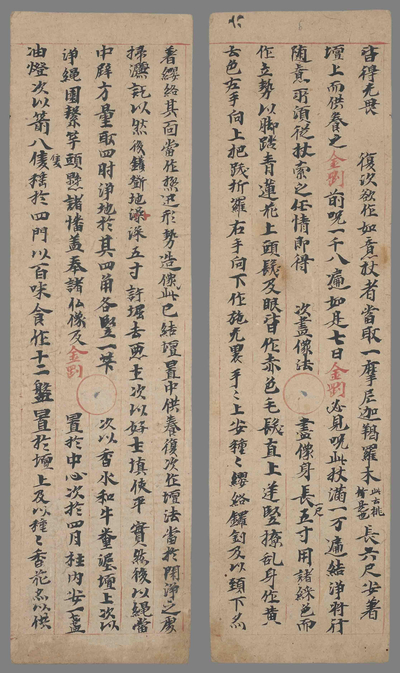 皆得无畏 復次欲作如意杖者當取一摩尼迦羯羅木此云桃樹是也長六尺安着
壇上而供養之金剛前呪一千八遍如是七日金剛必見呪此杖滿一万遍結淨行
随意所須從杖索之任情即得 次畫像法 畫像身長五尺寸用諸綵色而
作立勢以脚踐青蓮花上頭髮及眼皆作赤色毛髮直上蓬竪撩乱身作黄
去色左手向上把跋折羅右手向下作施无畏手〻上安種〻纓絡鐶釧及以頚下亦
着纓絡其面當作極迅形勢造像此已結壇置中供養復次作壇法當於閑淨之處
掃灑訖以然後斸地深深五寸許堀去惡土次以好土填使平實然後以繩當
中辟方量取四肘淨地於其四角各竪一 次以香水和牛糞塗壇上次以
淨繩圍繫竿頭懸諸幡蓋奉諸仏像及金剛 置於中心次於四月柱内安一盞
油燈次以箭八隻隻插於四門以百味食作十二盤置於壇上及以種〻香花亦以供